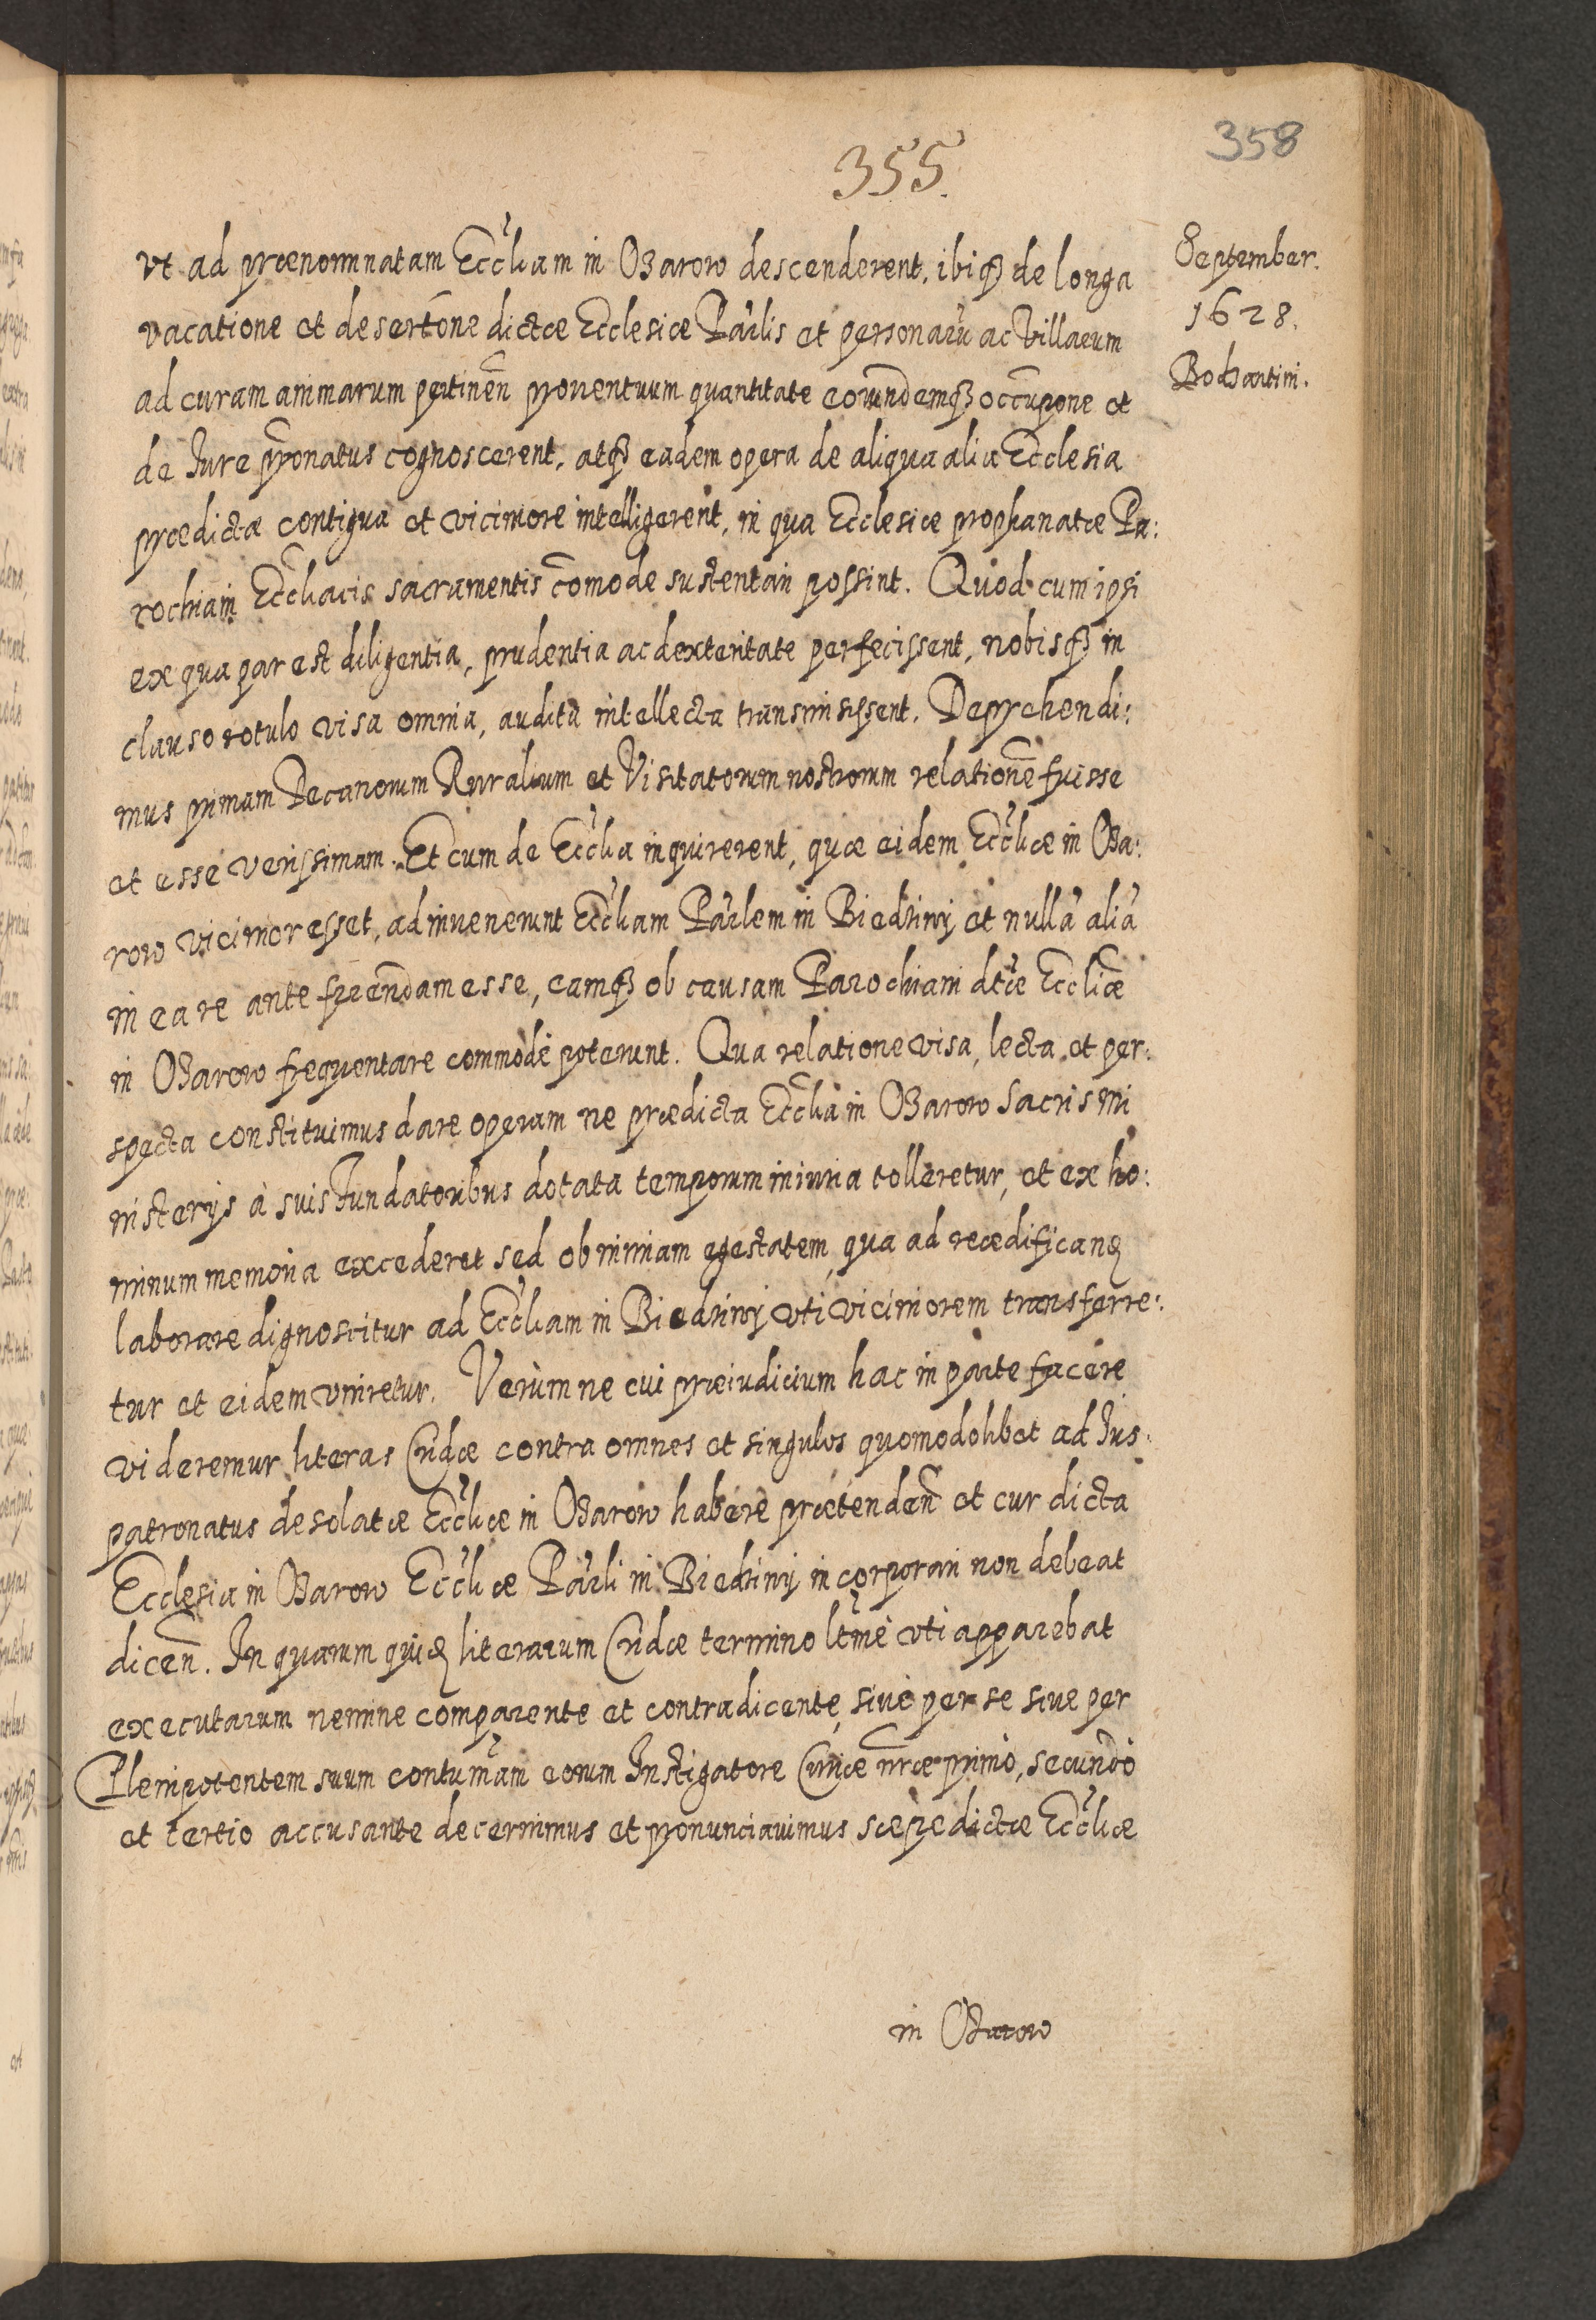 358
355.
September.
1628.
Bodzantini.
vt ad prænominatam Eccliam in Ożarow descenderent, ibiq; de longa
vacatione et desertõne dictæ Ecclesiæ Parlis et personarũ ac Villarum
ad curam animarum pertineñ prouentuum quantitate eorundemq; occupõne et
de Iure pronatus cognoscerent, atq; eadem opera de aliqua alia Ecclesia
prædictæ contigua et viciniore intelligerent, in qua Ecclesiæ prophanatæ Pa:
rochiani Eccliacis sacramentis cõmode sustentari possint. Quod cum ipsi
ex qua par est diligentia, prudentia ac dexteritate perfecissent, nobisq; in
clauso rotulo visa omnia, audita intellecta transmisissent. Deprehendi:
mus primam Decanorum Ruralium et Visitatorum nostrorum relationẽ fuisse
et esse verissimam. Et cum de Ecclia inquirerent, quæ eidem Eccliæ in Oża:
row vicinior esset, adinvenerunt Eccliam Parlem in Biedrziny et nulla alia
in ea re ante ferendam esse, eamq; ob causam Parochiani dtæ Eccliæ
in Ożarow frequentare commodè poterunt. Qua relatione visa, lecta et per:
specta constituimus dare operam ne prædicta Ecclia in Ożarow Sacris mi
nisterijs à suis Fundatoribus dotata temporum iniuria tolleretur, et ex ho:
minum memoria excederet sed ob nimiam egestatem, qua ad reædificand
laborare dignoscitur ad Eccliam in Biedrziny vti viciniorem transferre:
tur et eidem vniretur. Verùm ne cui præiudicium hac in parte facere
videremur literas Cridæ contra omnes et singulos quomodolibet ad Ius
patronatus desolatæ Eccliæ in Ożarow habere prætendeñ et cur dicta
Ecclesia in Ożarow Eccliæ Parli in Biedrziny incorporari non debeat
diceñ. In quarum quid literarum Cridæ termino ltme vti apparebat
executarum nemine comparente et contradicente, siue per se siue per
Plenipotentem suum contumam eorum Instigatore Curiæ nræ primò, secundò
et tertio accusante decernimus et pronunciauimus sæpedictæ Eccliæ
in Ożarow